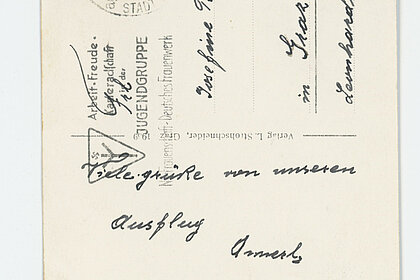 STADT
Arbeit-Freude-
Kameradschaft
in der
JUGENDGRUPPE
NS-Frauenschaft-Deutsches Frauenwerk
Josefine
in Graz
Leonhard
Verlag L. Strohschneider, Graz
Viele grüße von unseren
Ausflug
Annerl